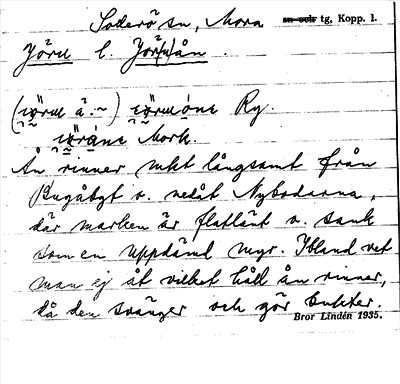 Soderö sn, Mora tg, Kopp. l.
Jöru l. Jör(u)ån.
Ry.
Mork.
Ån rinner mkt långsamt från
Bugåbyt o. nedåt Nybodarna,
där marken är flatlänt o. sank
som en uppdämd myr. Ibland vet
man ej åt vilket håll ån rinner,
då den svänger och gör bukter.
Bror Lindén 1935.